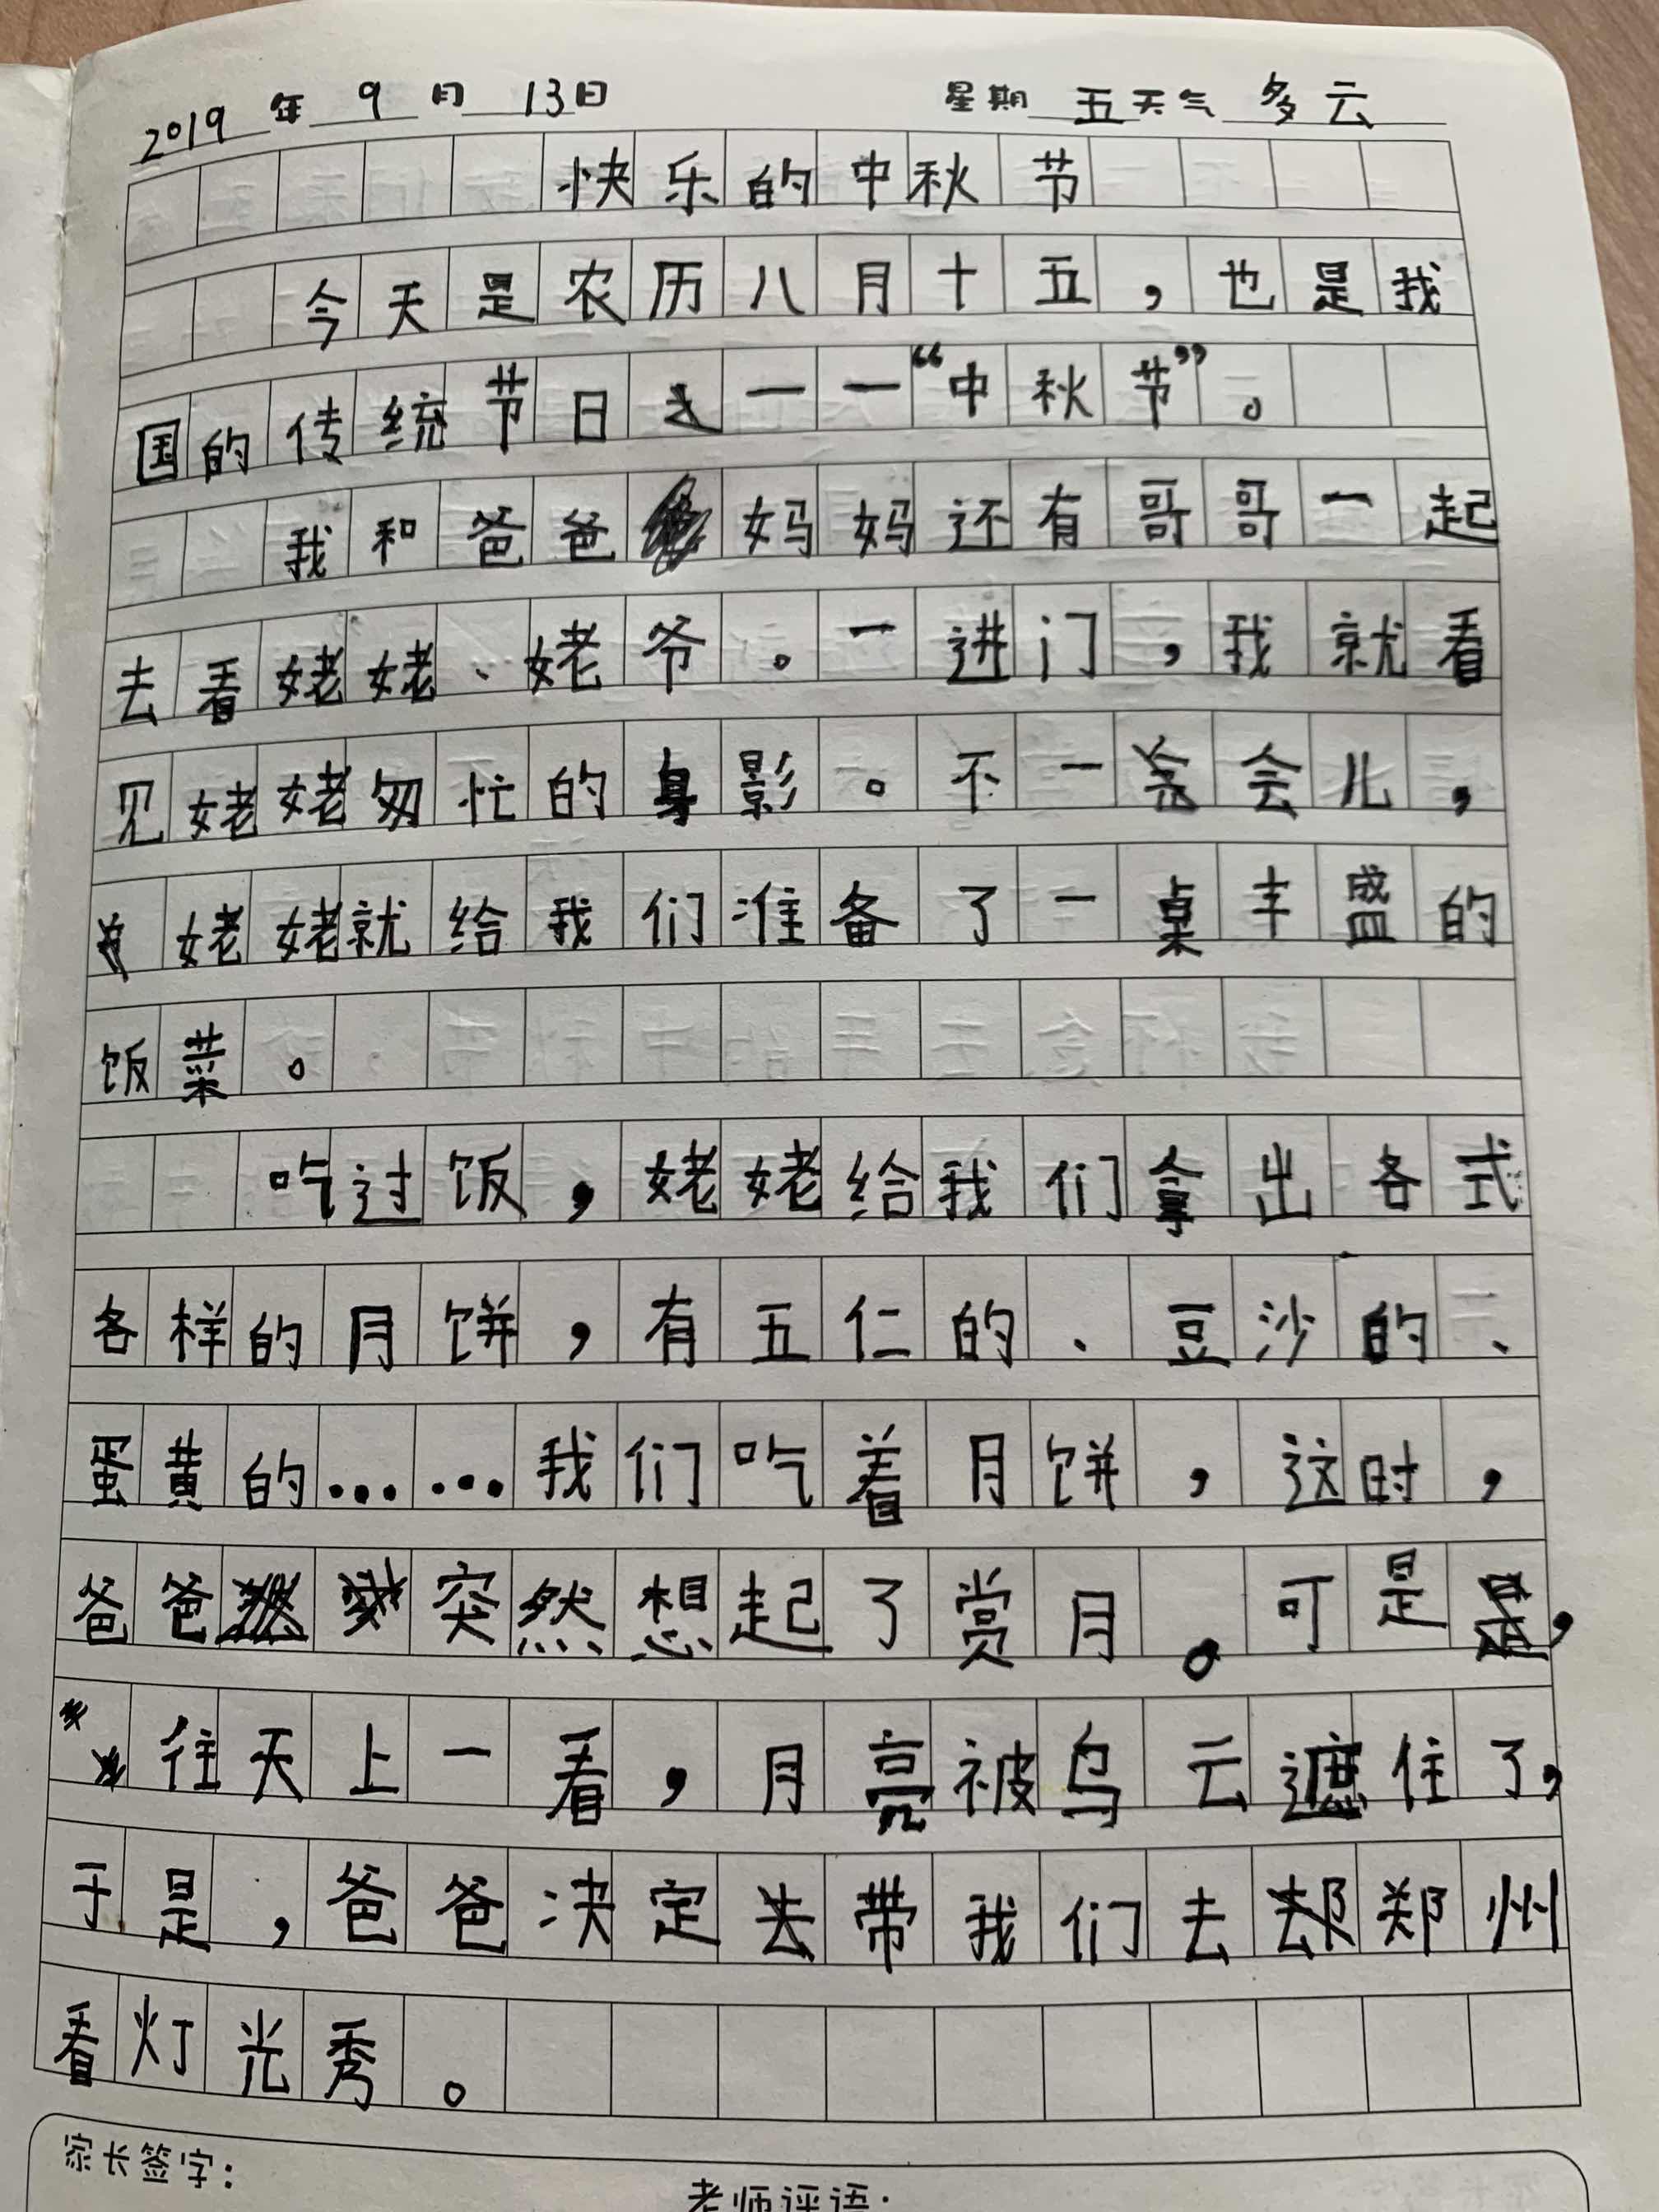 2019年9月13日 星期五天气多云
快乐的中秋节
今天是农历八月十五，也是我
国的传统节日——“中秋节”。
我和爸爸妈妈还有哥哥一起
去看姥姥、姥爷。一进门，我就看
见姥姥匆忙的身影。不一会儿，
姥姥就给我们准备了一桌丰盛的
饭菜。
吃过饭，姥姥给我们拿出各式
各样的月饼，有五仁的、豆沙的、
蛋黄的……我们吃着月饼，这时，
爸爸突然想起了赏月。可是，
往天上一看，月亮被乌云遮住了，
于是，爸爸决定去带我们去郑州
看灯光秀。
家长签字：
老师评语：